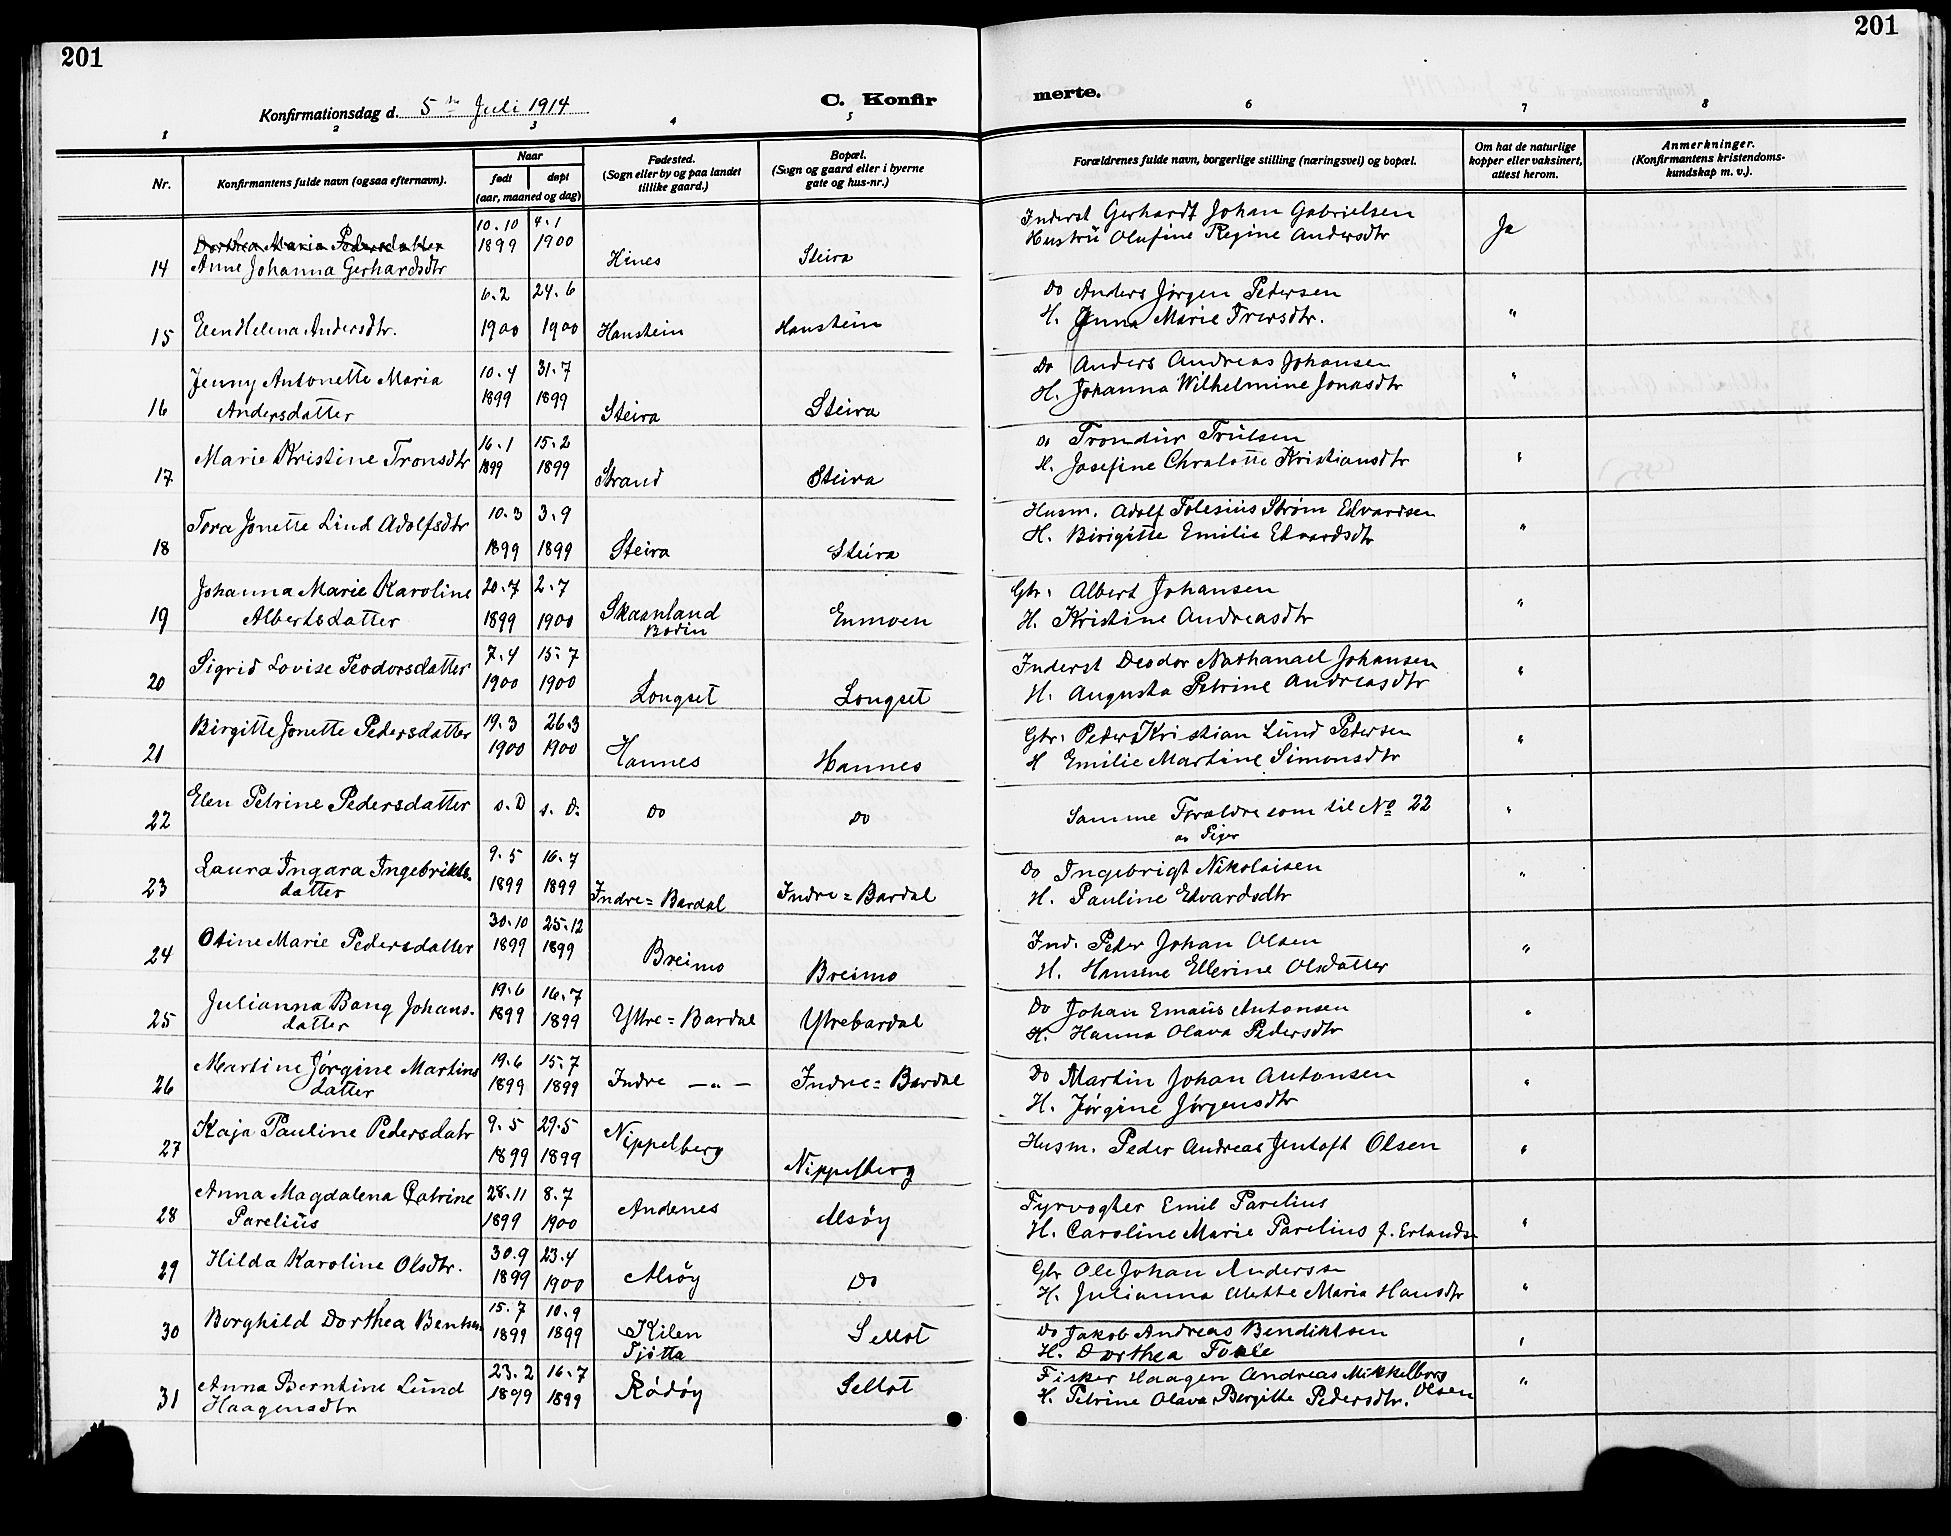 201
201
Konfirmationsdag d. 5te Juli 1914
C. Konfir
merte.
1 2 3 4 5 6 7 8
Nr.
Konfirmantens fulde navn (ogsaa efternavn).
Naar
født døpt
(aar, maaned og dag)
Fødested.
(Sogn eller by og paa landet
tillike gaard.)
Bopæl.
(Sogn og gaard eller i byerne
gate og hus-nr.)
Forældrenes fulde navn, borgerlige stilling (næringsvei) og bopæl.
Om hat de naturlige
kopper eller vaksinert,
attest herom.
Anmerkninger.
(Konfirmantens kristendoms-
kundskap m. v.).
Dorthea Maria Pedersdatter 10.10 4.1 Inderst Gerhardt Johan Gabrielsen
14 Anne Johanna Gerhardsdtr 1899 1900 Hines Steira Hustrü Olufine Regine Andersdtr Ja
6.2 24.6 Do Anders Jørgen Petersen
15 Elen Helena Andersdtr. 1900 1900 Hanstein Hanstein H. Anna Marie Iversdtr. "
Jenny Antonette Maria 10.4 31.7 Do Anders Andreas Johansen
16 Andersdatter 1899 1899 Steira Steira H. Johanna Wilhelmine Jonasdtr "
16.1 15.2 Do Trondür Trülsen
17 Marie Kristine Tronsdtr 1899 1899 Strand Steira H. Josefine Chralotte Kristiansdtr "
Tora Jonette Lind Adolfsdtr 10.3 3.9 Husm. Adolf Tolesius Strøm Edvardsen
18 1899 1899 Steira Steira H. Birigitte Emilie Edvardsdtr "
Johanna Marie Karoline 20.7 2.7 Skaanland Gbr. Albert Johansen
19 Albertsdatter 1899 1900 Bodin Enmoen H. Kristine Andreasdtr "
Sigrid Lovise Teodorsdatter 7.4 15.7 Inderst Deodor Nathanael Johansen
20 1900 1900 Longset Longset H. Augusta Petrine Andreasdtr "
Birgitte Jonette Pedersdatter 19.3 26.3 Gbr. Peder Kristian Lünd Petersen
21 1900 1900 Hannes Hannes H Emilie Martine Simonsdtr "
22 Elen Petrine Pedersdatter s. D s. D. Do Do Samme Foraldre som til No 22 "
av Piger
Laura Ingara Ingebrikts- 9.5 16.7 Do Ingebrigt Nikolaisen
23 datter 1899 1899 Indre=Bardal Indre=Bardal H. Pauline Edvardsdtr "
30.10 25.12 Ind. Peder Johan Olsen
24 Otine Marie Pedersdatter 1899 1899 Breimo Breimo H. Hansine Ellerine Olsdatter "
Julianna Bang Johans- 19.6 16.7 Do Johan Emaüs Antonsen
25 datter 1899 1899 Yttre=Bardal Ytrebardal H. Hanna Olava Pedersdtr "
Martine Jørgine Martins 19.6 15.7 Do Martin Johan Antonsen
26 datter 1899 1899 Indre — " — Indre=Bardal H. Jørgine Jørgensdtr "
Kaja Pauline Pedersdatr 9.5 29.5 Husm. Peder Andreas Jentoft Olsen "
27 1899 1899 Nippelberg Nippelberg
Anna Magdalena Catrine 28.11 8.7 Fyrvogter Emil Parelius
28 Parelius 1899 1900 Andenes Alsøy H. Caroline Marie Parelius f. Erlands "
Hilda Karoline Olsdtr. 30.9 23.4 Gbr Ole Johan Anderssn
29 1899 1900 Alsøy Do H. Julianna Alette Maria Hansdtr "
15.7 10.9 Do Jakob Andreas Bendiktsen
30 Borghild Dorthea 1899 1899 Kilen Tjøtta Sellot H. Dorthea "
Anna Berntine Lünd 23.2 16.7 Fisker Haagen Andreas Mikkelbors
31 Haagensdtr 1899 1899 Rødøy Sellot H. Petrine Olava Bergitte Pedersdtr. Olsen "